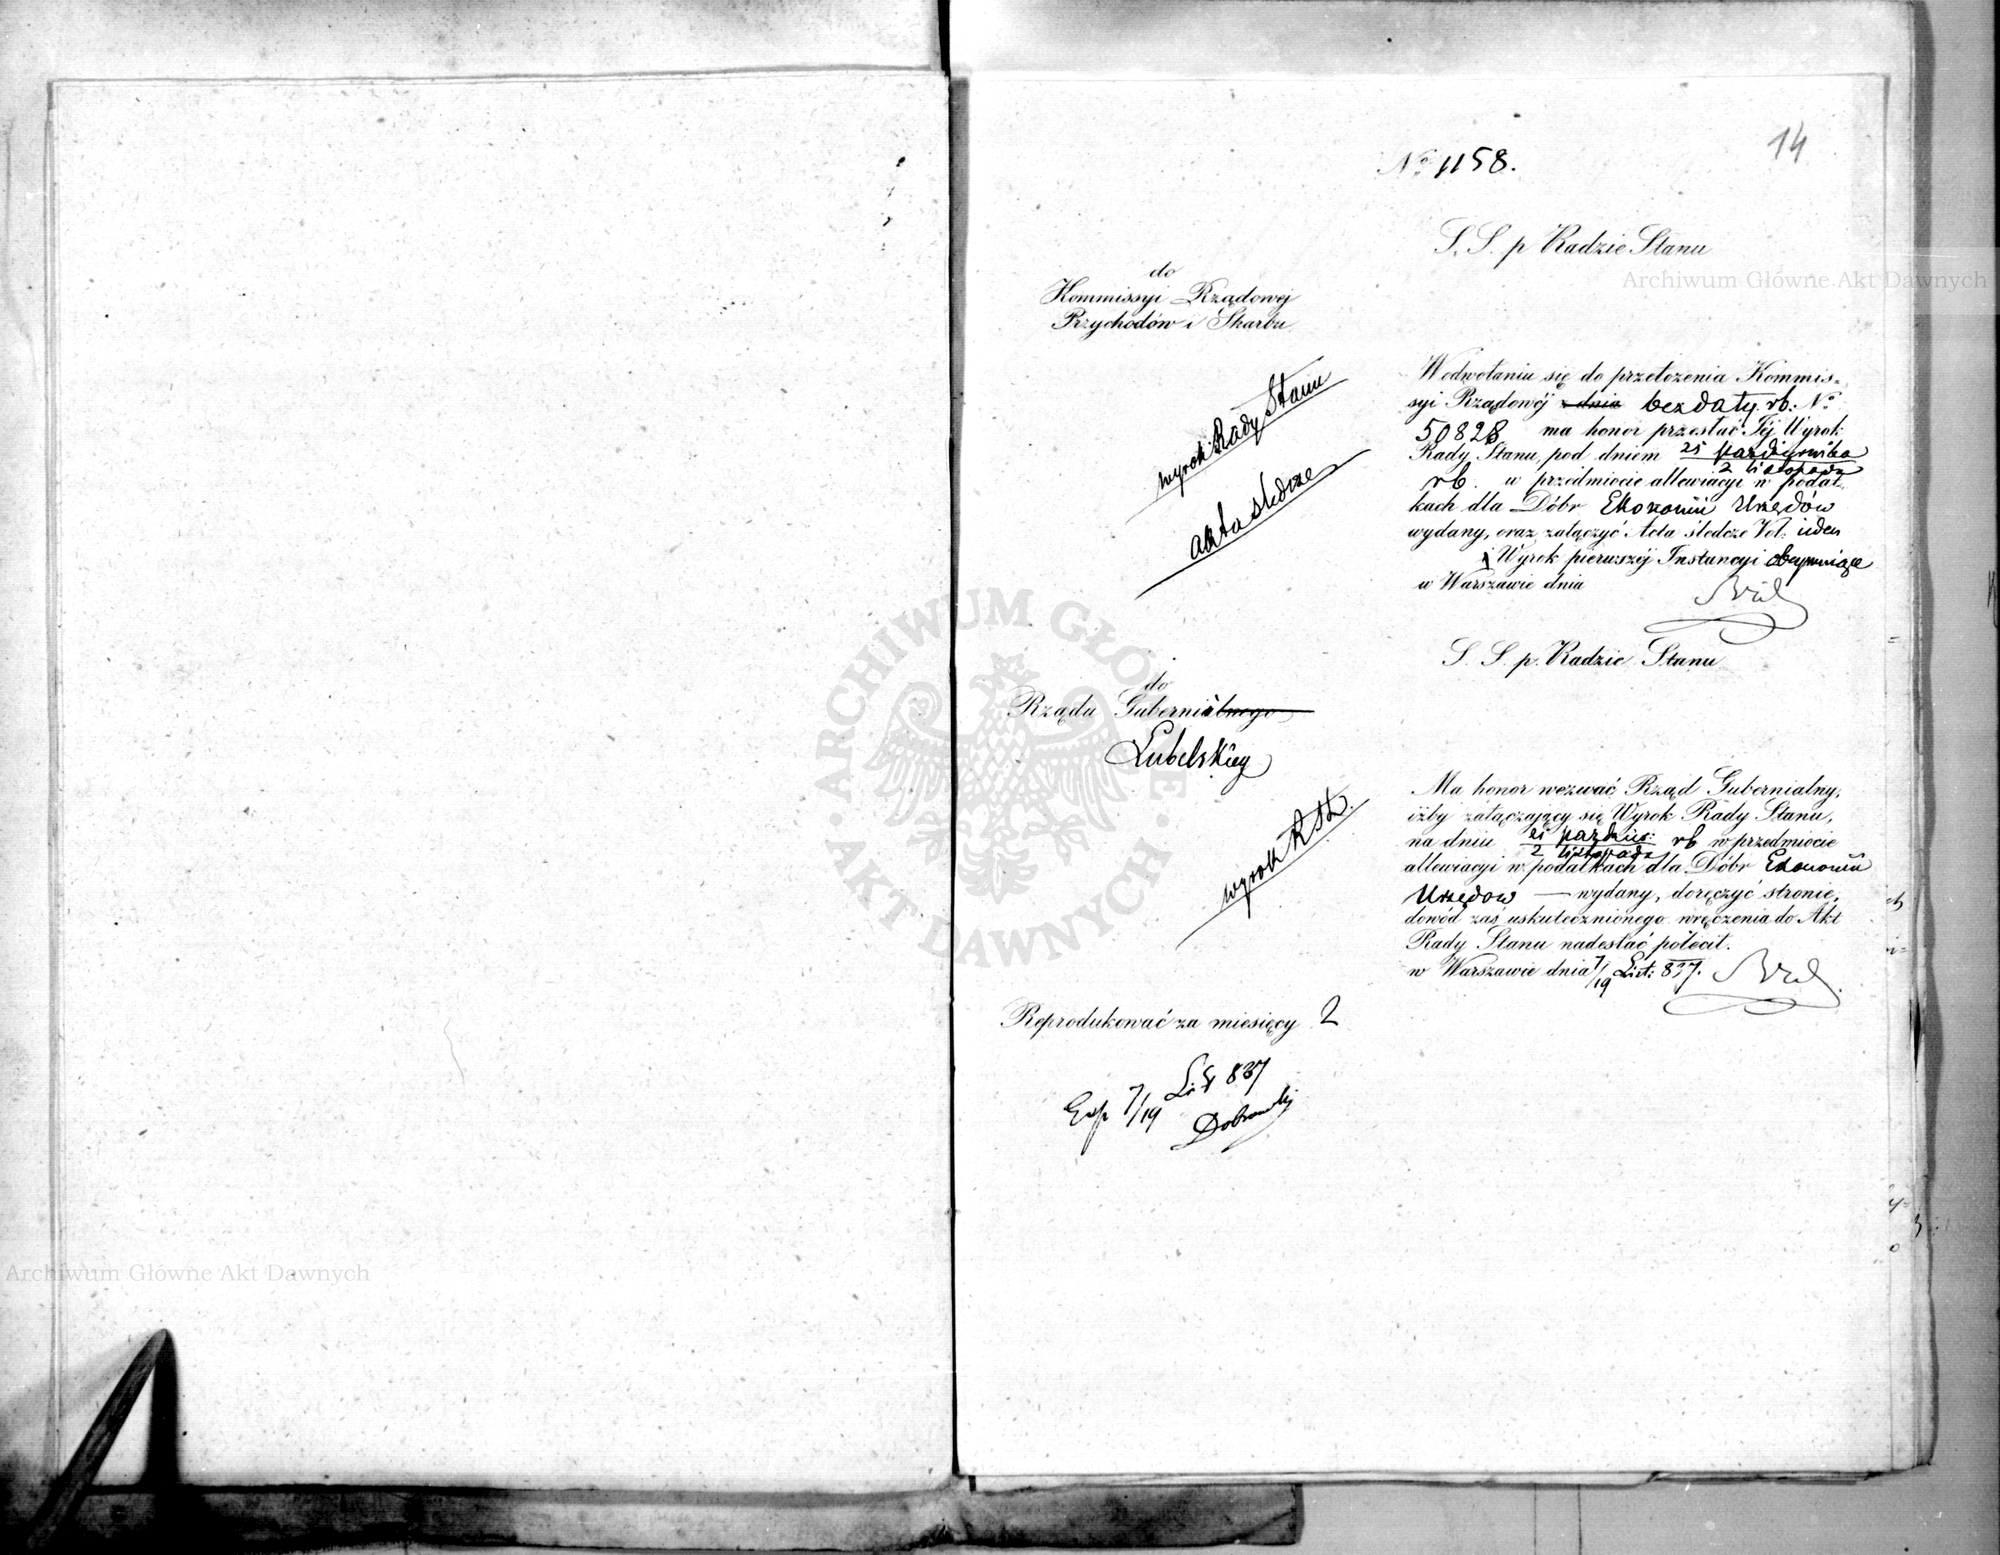 14
Nº 1158.
S. S. p Radzie Stanu
do
Kommissyi Rządowej
Przychodów i Skarbu
wyrok Rady Stanu
akta śledcze
W odwołaniu się do przełożenia Kommis-
syi Rządowéj z dnia bez daty rb. Nº
50828 ma honor przesłać Jéj Wyrok
Rady Stanu, pod dniem 21 października
2 listopada
rb. w przedmiocie allewiacyi w podat-
kach dla Dóbr Ekonomii Urzędów
wydany, oraz załączyć Acta śledcze Vol.
i Wyrok pierwszéj Instancyi obejmujące
w Warszawie dnia
S. S. p. Radzie Stanu
do
Rządu Gubernialnego
Lubelskieg
wyrok R St.
Ma honor wezwać Rząd Gubernialny,
iżby załączający się Wyrok Rady Stanu,
na dniu 21 paździer:
2 listopada rb w przedmiocie
allewiacyi w podatkach dla Dóbr Ekonomii
Urzędow — wydany, doręczyć stronie,
dowód zaś uskutecznionego wręczenia do Akt
Rady Stanu nadesłać polecił.
w Warszawie dnia 7/19 List: 837.
Reprodukować za miesięcy 2
Exp 7/19 List 837
Archiwum Główne Akt Dawnych
Archiwum Główne Akt Dawnych
ARCHIWUM GŁÓWNE · AKT DAWNYCH ·